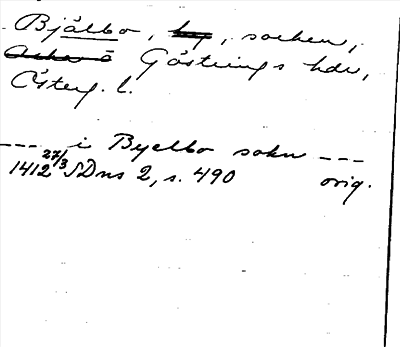 Bjälbo, by, socken,
Göstrings hdr,
Österg. l.
--- i Byelbo sokn ---
1412 27/3 SDns 2, s. 490 orig.